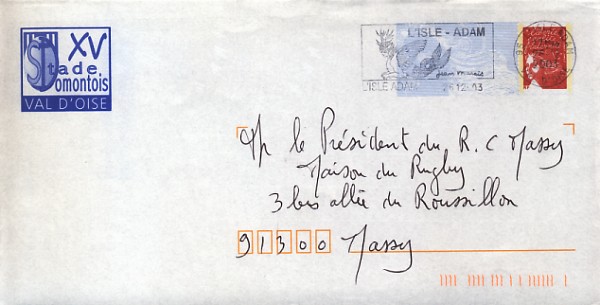 XV
Stade
Domontois
VAL D'OISE
L'ISLE - ADAM
L'ISLE ADAM
12 03
Mr le Président du R. C Massy
Maison du Rugby
3 bis allée du Roussillon
91300 Massy